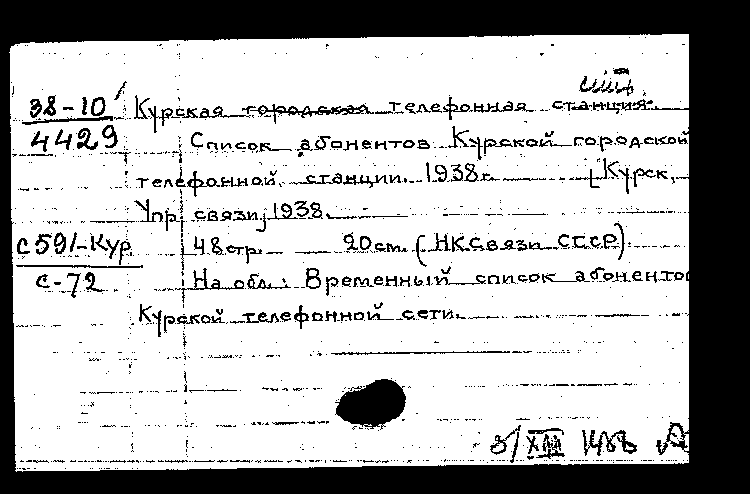 38-10
4429
Курская городская телефонная станция.
Список абонентов Курской городской
телефонной станции. 1938г. [Курск,
Упр. связи, 1938.
с591-Кур
с-72
48 стр. 20 см. (НКСвязи СССР)
На обл.: Временный список абоненто
Курской телефонной сети.
3/XIII